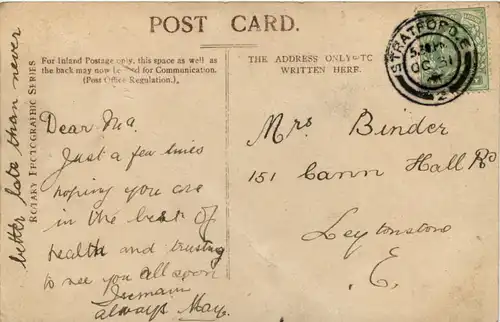 POST CARD.
For Inland Postage only, this space as well as
the back may now be used for Communication.
(Post Office Regulation.)
THE ADDRESS ONLY TO
WRITTEN HERE.
STRATFORD. E
OC 31
better late than never
ROTARY PHOTOGRAPHIC SERIES
Dear Ma.
Just a few lines
hoping you are
in the best of
health and trusting
to see you all soon
always May.
Mrs Binder
151 Cann Hall Rd
Leytonstone
E.